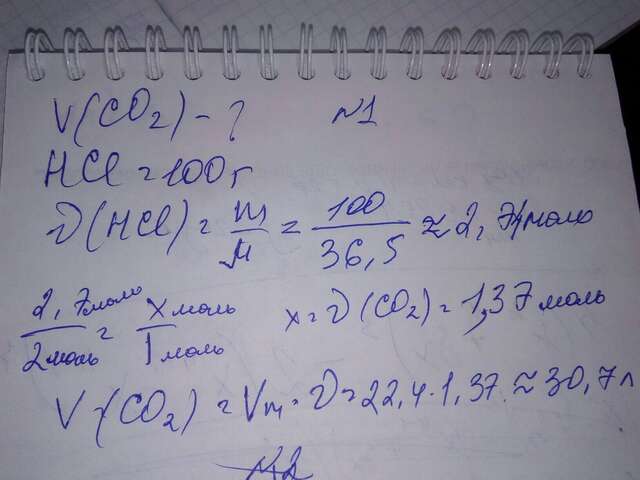 V(CO₂) - ? №1
HCl = 100г
ν(HCl) = m/M = 100/36,5 ≈ 2,74моль
2,7моль/2моль = x моль/1моль x = ν(CO₂) = 1,37 моль
V(CO₂) = Vm · ν = 22,4 · 1,37 ≈ 30,7л
№2